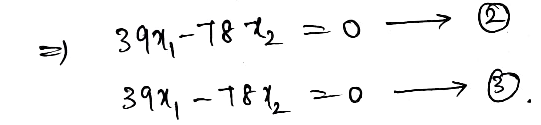 ⇒ 39x₁ - 78x₂ = 0 ⟶ ②
39x₁ - 78x₂ = 0 ⟶ ③.